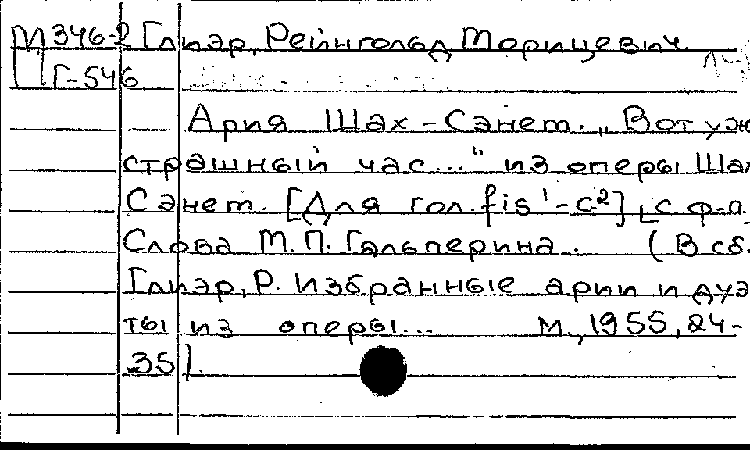 М346-2 Глиэр, Рейнгольд Морицевич
Г-546
Ария Шах-Санем. „Вот уж
страшный час..." из оперы Шах
Санем. [Для гол. fis¹-c²] с ф-п.
Слова М.П. Гальперина. (В сб.
Глиэр, Р. Избранные арии и дуэ
ты из оперы... М., 1955, 24-
35).